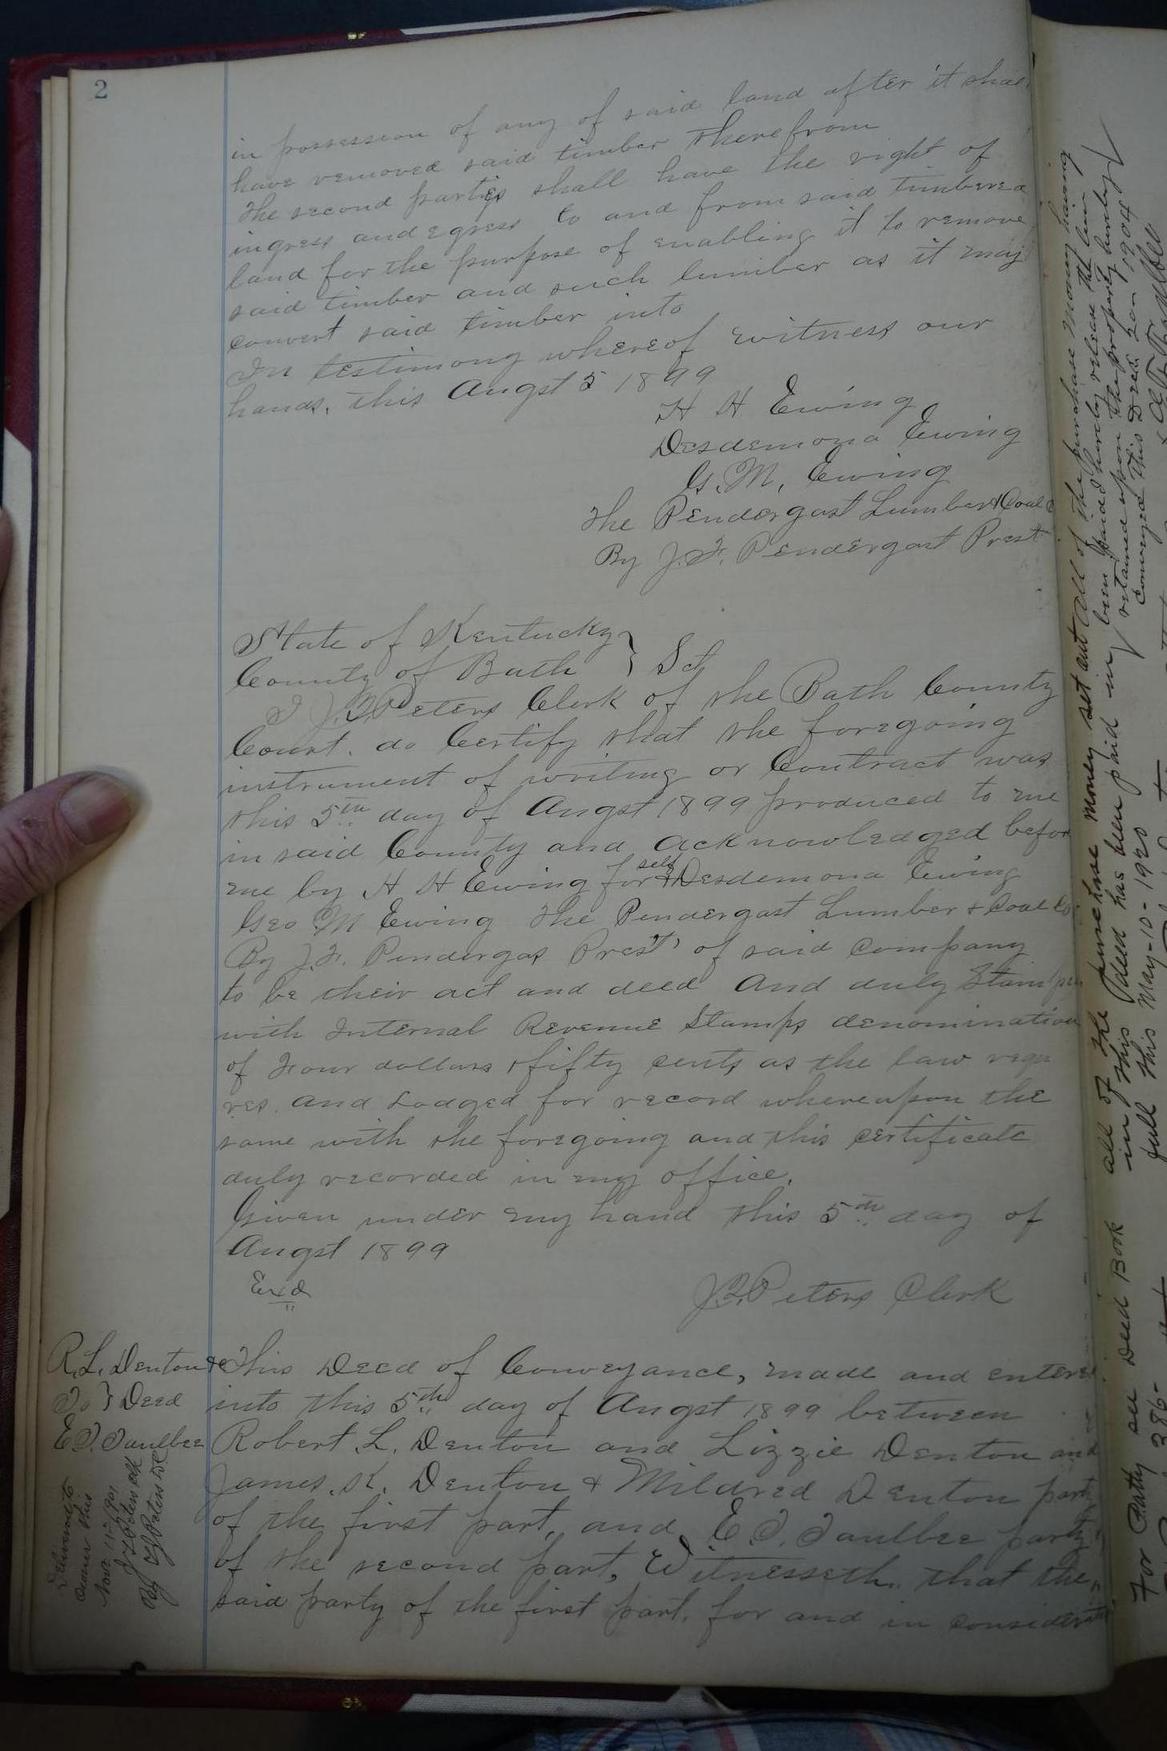 2
in possession of any of said land after it shall
have removed said timber therefrom
The second parties shall have the right of
ingress and egress to and from said timbered
land for the purpose of enabling it to remove
said timber and such lumber as it may
convert said timber into
In testimony whereof witness our
hands, this Augst 5 1899
H H Ewing
Desdemona Ewing
G. M. Ewing
The Pendergast Lumber & Coal C
By J. F. Pendergast Prest
State of Kentucky }
County of Bath } Sct
I J. B. Peters Clerk of the Bath County
Court. do Certify that the foregoing
instrument of writing or Contract was
this 5th day of Augst 1899 produced to me
in said County and acknowledged before
me by H H Ewing for self & Desdemona Ewing
Geo M Ewing The Pendergast Lumber & Coal Co
By J. F. Pendergas Prest of said company
to be their act and deed and duly Stamped
with Internal Revenue Stamps denomination
of Four dollars & fifty cents as the law requi
res. and Lodged for record whereupon the
same with the foregoing and this certificate
duly recorded in my office.
Given under my hand this 5th day of
Augst 1899
Exd
J. B. Peters Clerk
R. L. Denton &c
To } Deed
E. T. Faulbee
Delivered to
owner this
Nov 11-1901
By
This Deed of Conveyance, made and entered
into this 5th day of Augst 1899 between
Robert L. Denton and Lizzie Denton and
James. K. Denton & Mildred Denton party
of the first part, and E. T. Faulbee party
of the second part, Witnesseth. that the
said party of the first part, for and in considerati
all of the purchase money set out
in this deed has been paid in
full this May-10-1920
all of the purchase money having
been paid hereby release the lien
retained upon the property hereby
conveyed this Dec 1904
For Party see Deed Book